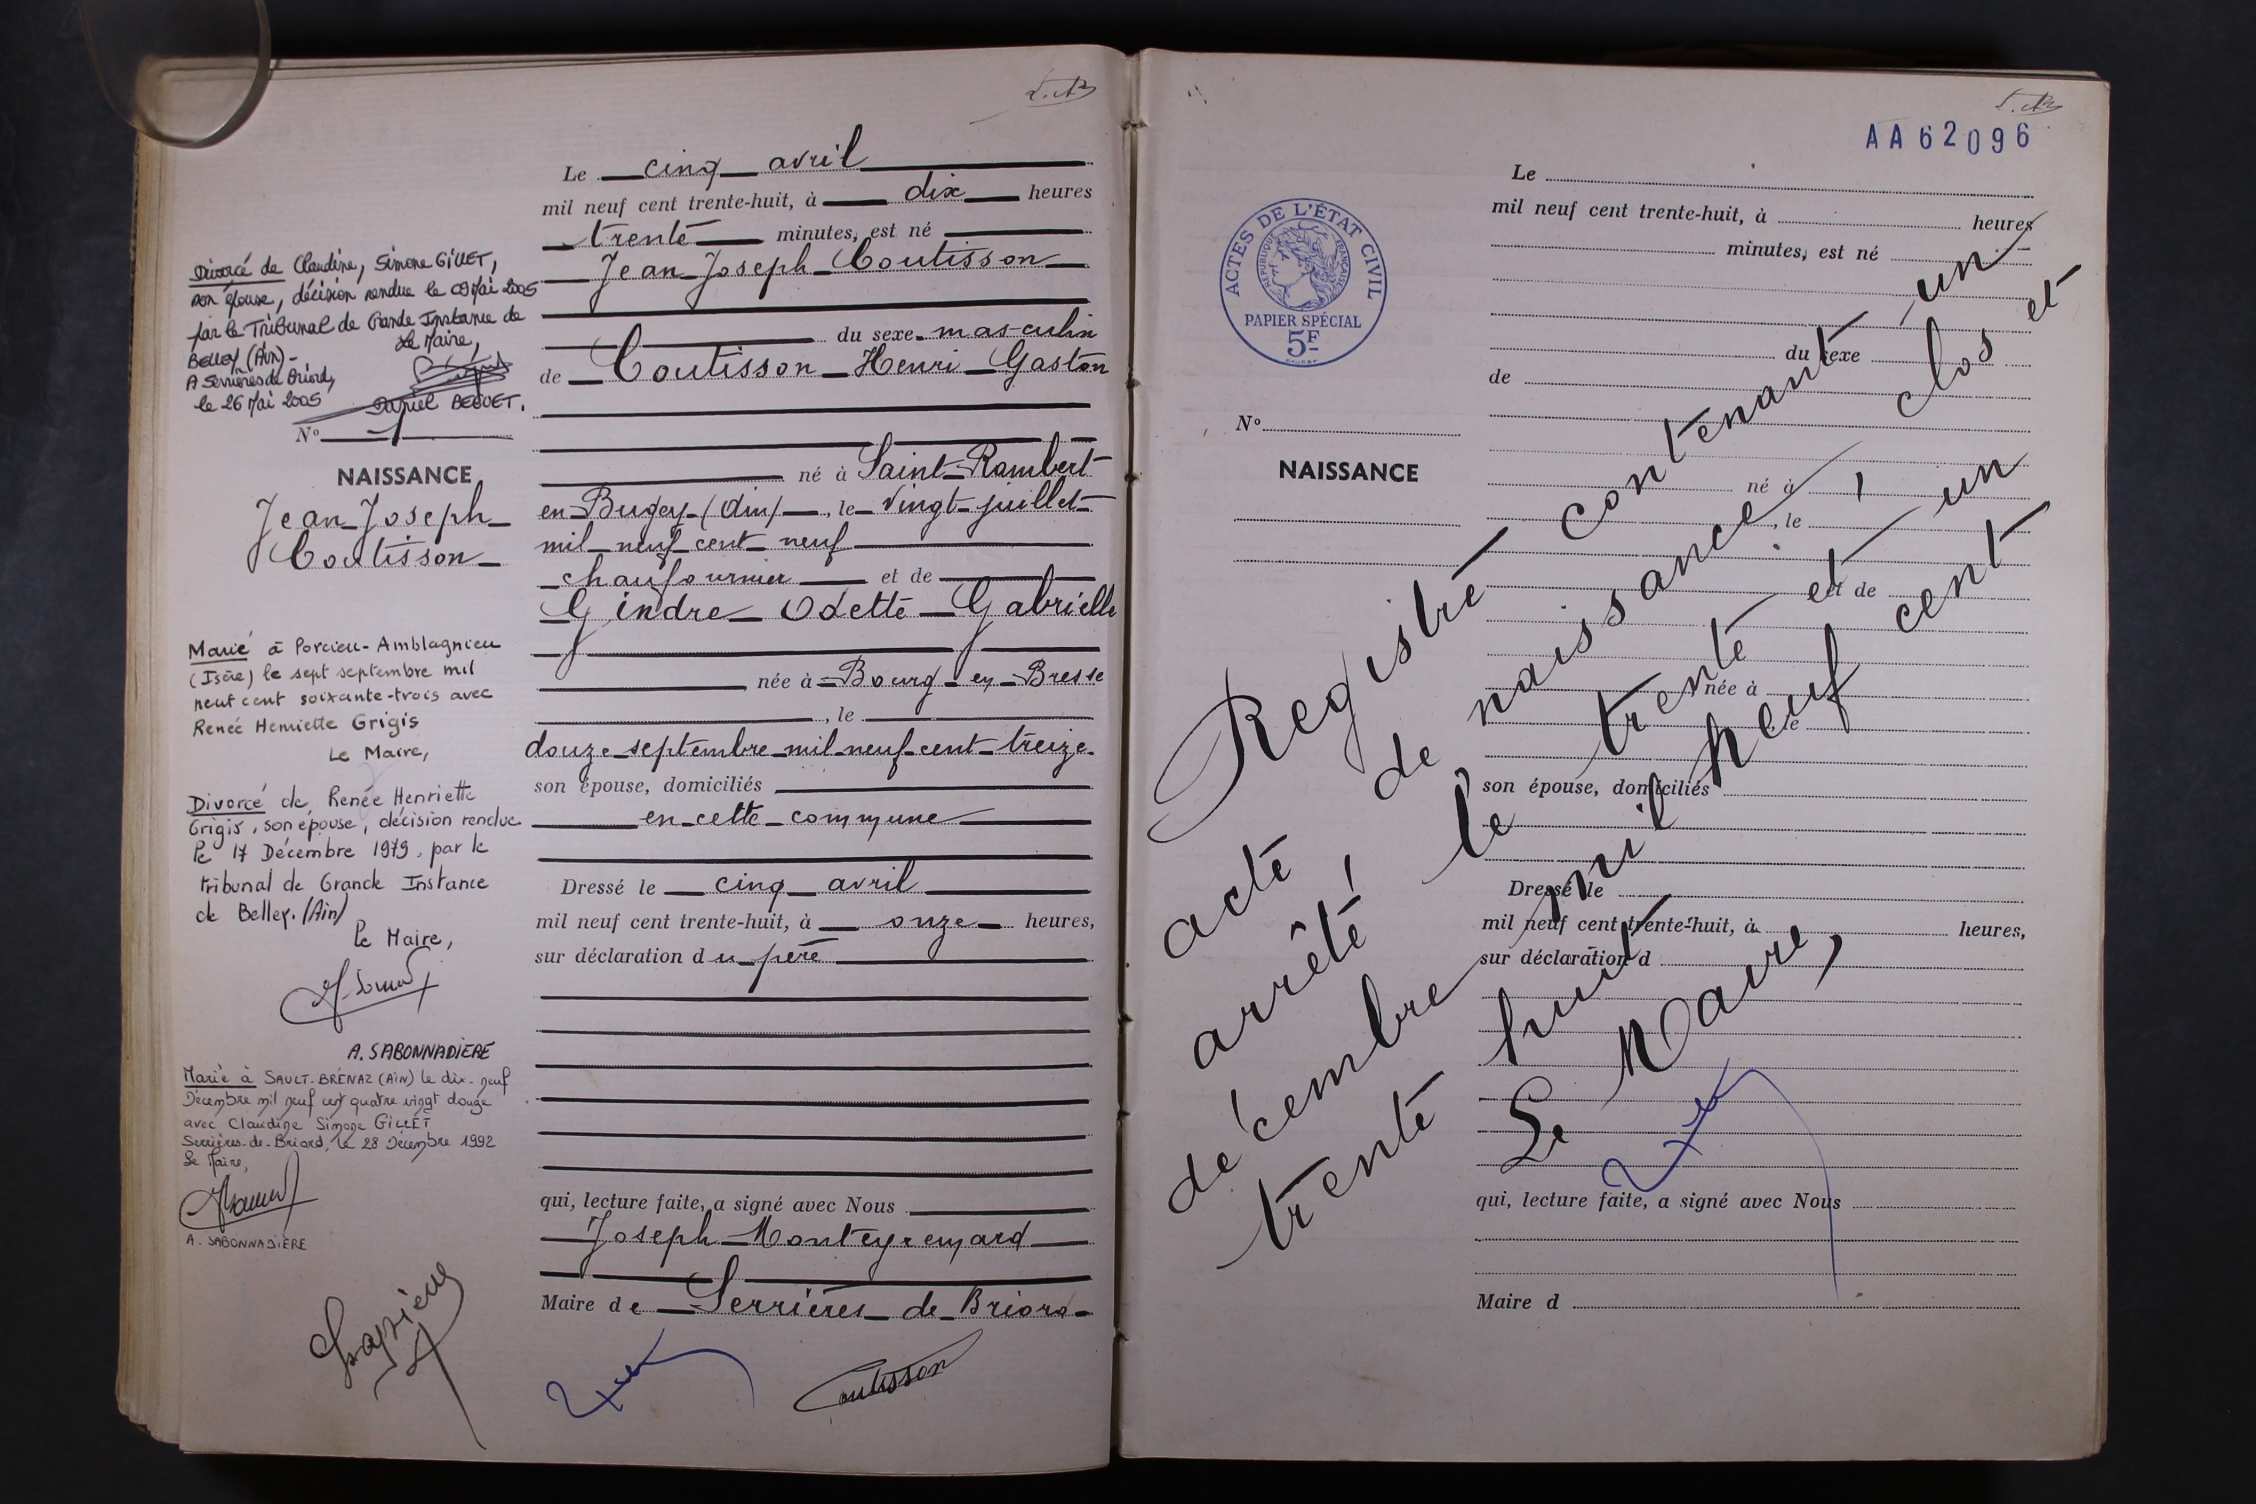 Divorcé de Claudine, Simone GILLET,
son épouse, décision rendue le 09 Mai 2005
par le Tribunal de Grande Instance de
Belley (Ain) -
Le Maire,
A Serrières de Briord,
le 26 Mai 2005
Daniel BEGUET.
N° 1
NAISSANCE
Jean Joseph
Coutisson
Marié à Porcieu-Amblagnieu
(Isère) le sept septembre mil
neuf cent soixante-trois avec
Renée Henriette Grigis
Le Maire,
Divorcé de Renée Henriette
Grigis, son épouse, décision rendue
le 17 Décembre 1979, par le
tribunal de Grande Instance
de Belley. (Ain)
Le Maire,
A. SABONNADIERE
Marié à SAULT-BRÉNAZ (AIN) le dix-neuf
Décembre mil neuf cent quatre vingt douze
avec Claudine Simone GILLET
Serrières-de-Briord, le 28 Décembre 1992
Le Maire,
A. SABONNADIÈRE
Le cinq avril
mil neuf cent trente-huit, à dix heures
trente minutes, est né
Jean Joseph Coutisson
du sexe masculin
de Coutisson Henri Gaston
né à Saint-Rambert
en Bugey (Ain), le vingt juillet
mil neuf cent neuf
chaufournier et de
Gindre Odette Gabrielle
née à Bourg en Bresse
, le
douze septembre mil neuf cent treize
son épouse, domiciliés
en cette commune
Dressé le cinq avril
mil neuf cent trente-huit, à onze heures,
sur déclaration du père
qui, lecture faite, a signé avec Nous
Joseph Monteyremard
Maire de Serrières de Briord
Coutisson
AA62096
ACTES DE L'ÉTAT CIVIL
RÉPUBLIQUE FRANÇAISE
PAPIER SPÉCIAL
5F
N°
NAISSANCE
Le
mil neuf cent trente-huit, à heures
minutes, est né
du sexe
de
né à
, le
et de
née à
, le
son épouse, domiciliés
Dressé le
mil neuf cent trente-huit, à heures,
sur déclaration d
qui, lecture faite, a signé avec Nous
Maire d
Registre contenant un
acte de naissance, clos et
arrêté, le trente et un
décembre mil neuf cent
trente huit
Le Maire,